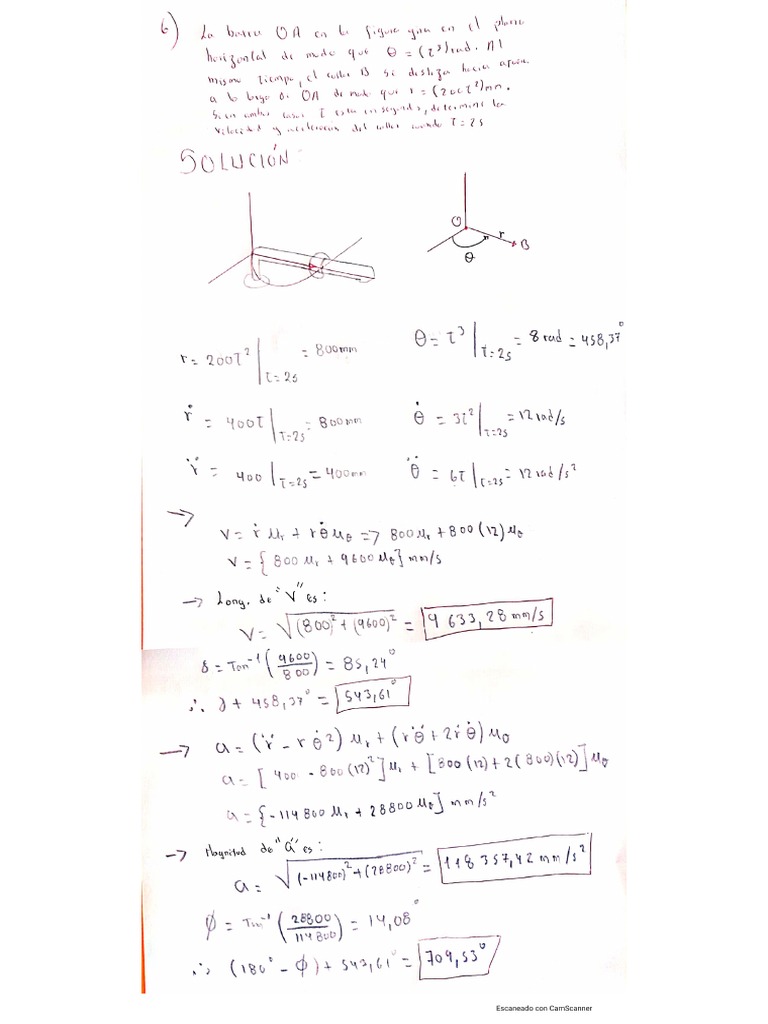 6) La barra OA en la figura gira en el plano
horizontal de modo que θ = (t³)rad. Al
mismo tiempo, el collar B se desliza hacia afuera
a lo largo de OA de modo que r = (200t²)mm.
Si en ambos casos t esta en segundos, determine la
velocidad y aceleracion del collar cuando t = 2s
SOLUCIÓN:
O r B
θ
r = 200t² |t=2s = 800mm
θ = t³ |t=2s = 8 rad = 458,37°
ṙ = 400t |t=2s = 800mm
θ̇ = 3t² |t=2s = 12 rad/s
r̈ = 400 |t=2s = 400mm
θ̈ = 6t |t=2s = 12 rad/s²
→
V = ṙ μr + rθ̇ μθ => 800μr + 800(12)μθ
V = {800μr + 9600μθ} mm/s
→ Long. de "V" es:
V = √((800)² + (9600)²) = 9 633,28 mm/s
δ = Tan⁻¹(9600/800) = 85,24°
∴ δ + 458,37° = 543,61°
→ a = (r̈ - rθ̇²)μr + (rθ̈ + 2ṙθ̇)μθ
a = [400 - 800(12)²]μr + [800(12) + 2(800)(12)]μθ
a = {-114800μr + 28800μθ} mm/s²
→ Magnitud de "a" es:
a = √((-114800)² + (28800)²) = 118 357,42 mm/s²
ϕ = Tan⁻¹(28800/114800) = 14,08°
∴ (180° - ϕ) + 543,61° = 709,53°
Escaneado con CamScanner